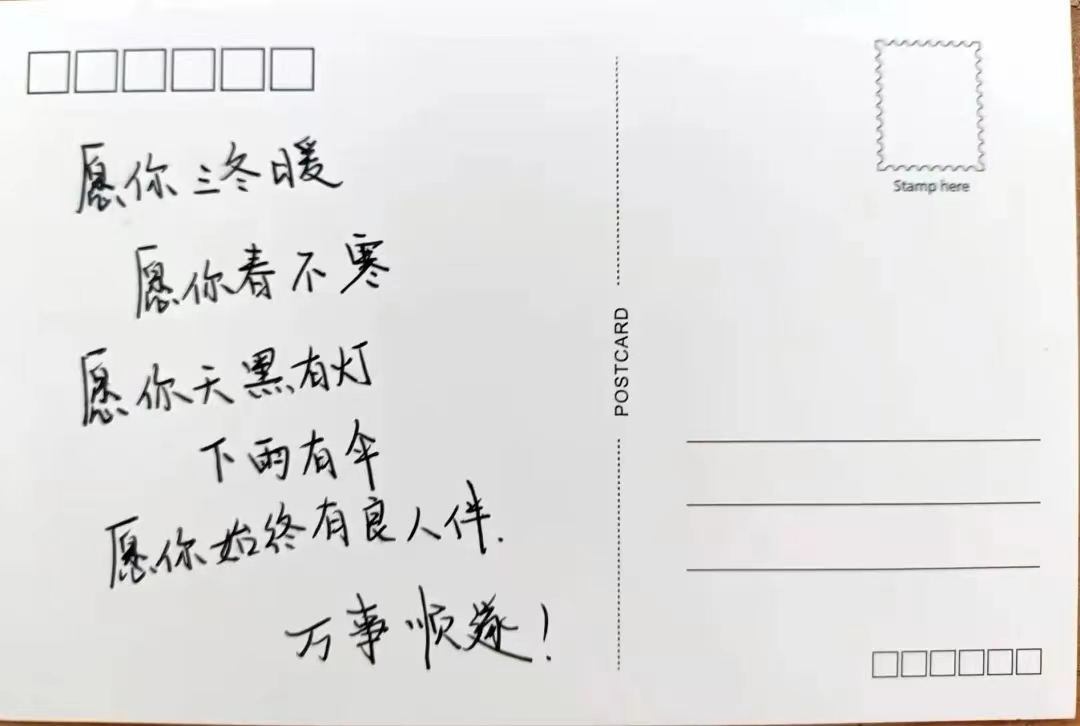 愿你三冬暖
愿你春不寒
愿你天黑有灯
下雨有伞
愿你始终有良人伴.
万事顺遂！
POSTCARD
Stamp here